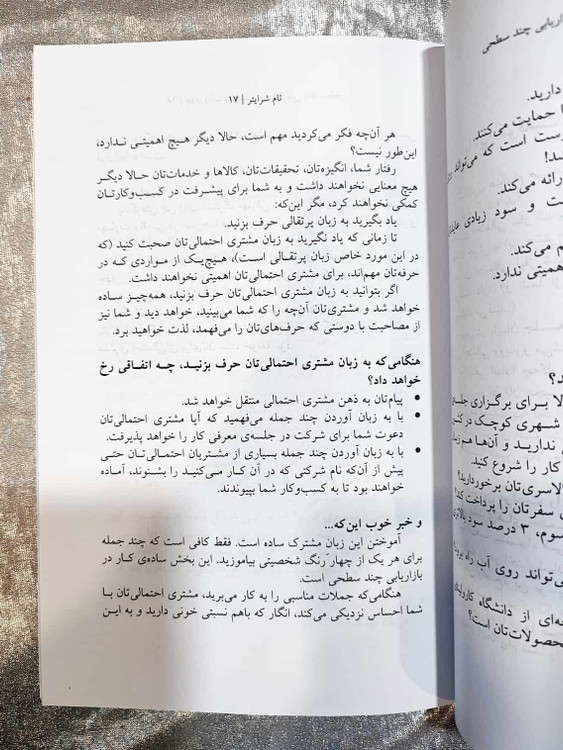 تام شرایتر | ۱۷
هر آن‌چه فکر می‌کردید مهم است، حالا دیگر هیچ اهمیتی ندارد،
این‌طور نیست؟
رفتار شما، انگیزه‌تان، تحقیقات‌تان، کالاها و خدمات‌تان حالا دیگر
هیچ معنایی نخواهند داشت و به شما برای پیشرفت در کسب‌وکارتان
کمکی نخواهند کرد، مگر این‌که:
یاد بگیرید به زبان پرتقالی حرف بزنید.
تا زمانی که یاد نگیرید به زبان مشتری احتمالی‌تان صحبت کنید (که
در این مورد خاص زبان پرتقالی است)، هیچ‌یک از مواردی که در
حرفه‌تان مهم‌اند، برای مشتری احتمالی‌تان اهمیتی نخواهند داشت.
اگر بتوانید به زبان مشتری احتمالی‌تان حرف بزنید، همه‌چیز ساده
خواهد شد و مشتری‌تان آن‌چه را که شما می‌بینید، خواهد دید و شما نیز
از مصاحبت با دوستی که حرف‌های‌تان را می‌فهمد، لذت خواهید برد.
هنگامی‌که به زبان مشتری احتمالی‌تان حرف بزنید، چه اتفاقی رخ
خواهد داد؟
• پیام‌تان به ذهن مشتری احتمالی منتقل خواهد شد.
• با به زبان آوردن چند جمله می‌فهمید که آیا مشتری احتمالی‌تان
دعوت شما برای شرکت در جلسه‌ی معرفی کار را خواهد پذیرفت.
• با به زبان آوردن چند جمله بسیاری از مشتریان احتمالی‌تان حتی
پیش از آن‌که نام شرکتی که در آن کار می‌کنید را بشنوند، آماده
خواهند بود تا به کسب‌وکار شما بپیوندند.
و خبر خوب این‌که...
آموختن این زبان مشترک ساده است. فقط کافی است که چند جمله
برای هر یک از چهار رنگ شخصیتی بیاموزید. این بخش ساده‌ی کار در
بازاریابی چند سطحی است.
هنگامی‌که جملات مناسبی را به کار می‌برید، مشتری احتمالی‌تان با
شما احساس نزدیکی می‌کند، انگار که باهم نسبتی خونی دارید و به این
چند سطحی
دارید.
حمایت می‌کنند.
است که می‌تواند
رائه می‌کند.
و سود زیادی
می‌کند.
همیتی ندارد.
برای برگزاری
شهری کوچک در
ندارید و آن‌ها هم
کار را شروع کنید.
برخوردارید؟
سفرتان را پرداخت کند؟
سوم، ۳ درصد سود
می‌تواند روی آب راه
از دانشگاه
محصولات‌تان است؟